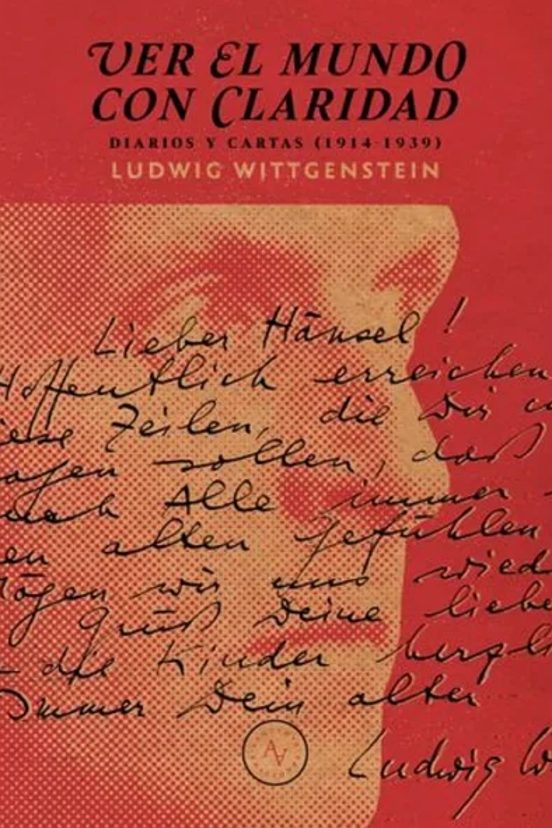 VER EL MUNDO
CON CLARIDAD
DIARIOS Y CARTAS (1914-1939)
LUDWIG WITTGENSTEIN
Lieber Hänsel!
Hoffentlich erreichen
iese Zeilen, die Dir
agen sollen, daß
euch Alle immer
en alten Gefühlen
Mögen wir uns wied
Grüß Deine liebe
die Kinder herzli
Immer Dein alter
Ludwig W